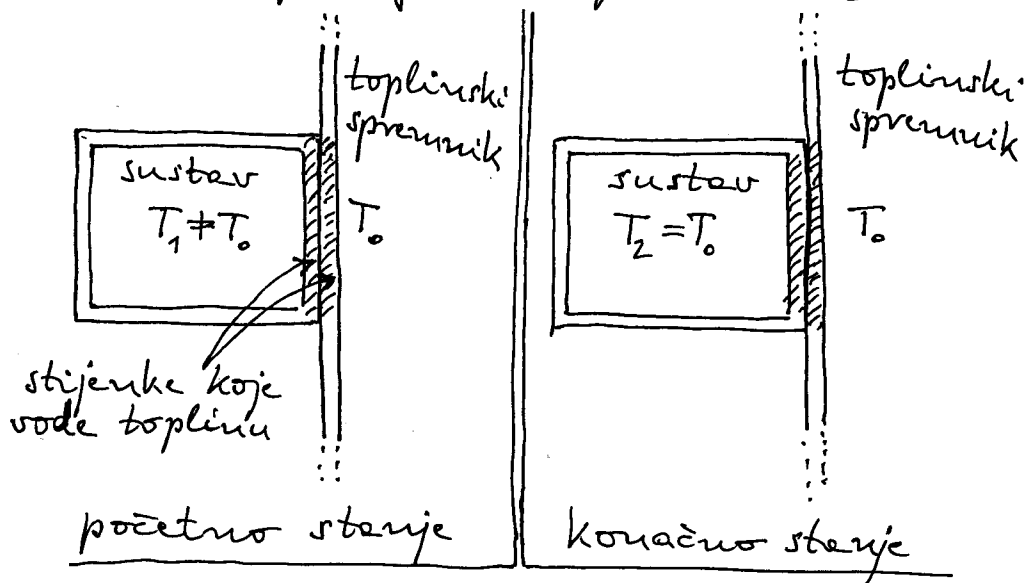 toplinski
spremnik
sustav
T₁ ≠ T₀
T₀
stijenke koje
vode toplinu
početno stanje
toplinski
spremnik
sustav
T₂ = T₀
T₀
konačno stanje